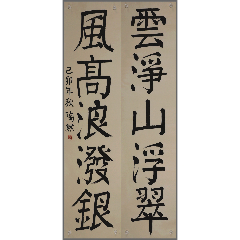 雲淨山浮翠
風高浪潑銀
己卯年秋